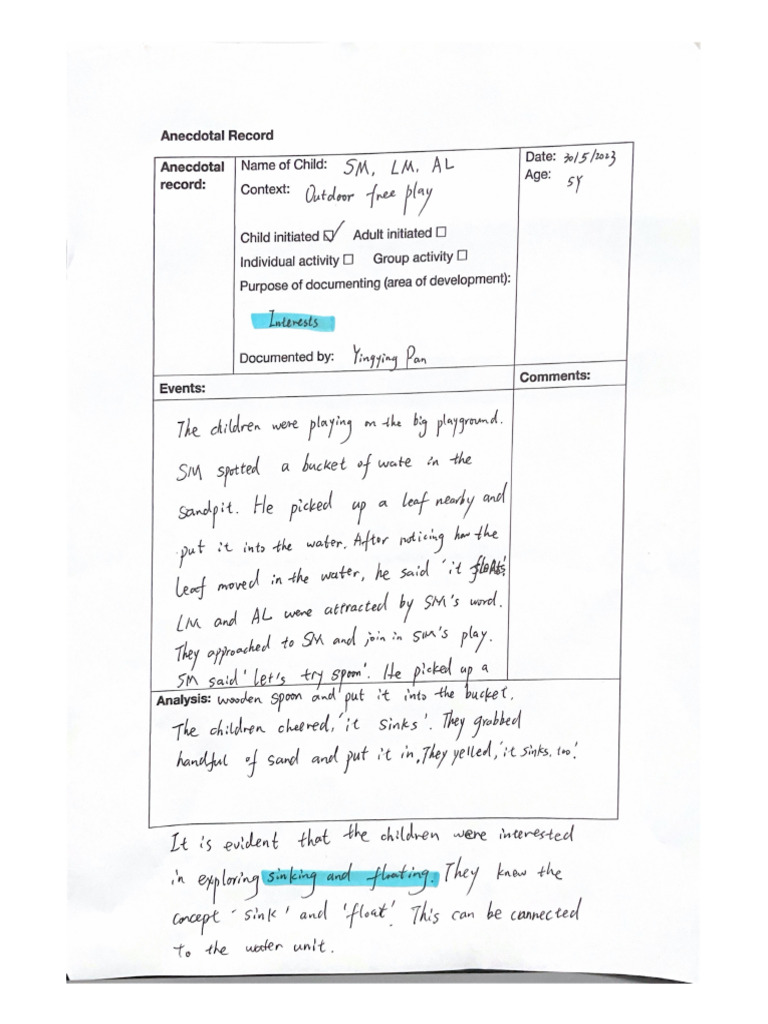 Anecdotal Record
Anecdotal record:
Name of Child: SM, LM, AL
Context: Outdoor free play
Child initiated ☑ Adult initiated ☐
Individual activity ☐ Group activity ☐
Purpose of documenting (area of development):
Interests
Documented by: Yingying Pan
Date: 30/5/2023
Age: 5Y
Events:
Comments:
The children were playing on the big playground.
SM spotted a bucket of wate in the
sandpit. He picked up a leaf nearby and
put it into the water. After noticing how the
leaf moved in the water, he said 'it floats'.
LM and AL were attracted by SM's word.
They approached to SM and join in SM's play.
SM said 'let's try spoon'. He picked up a
Analysis: wooden spoon and put it into the bucket.
The children cheered, 'it sinks'. They grabbed
handful of sand and put it in. They yelled, 'it sinks, too!'
It is evident that the children were interested
in exploring sinking and floating. They know the
concept 'sink' and 'float'. This can be connected
to the water unit.